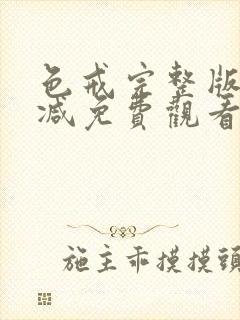 色戒完整版
减免費觀看
施主乖摸摸頭